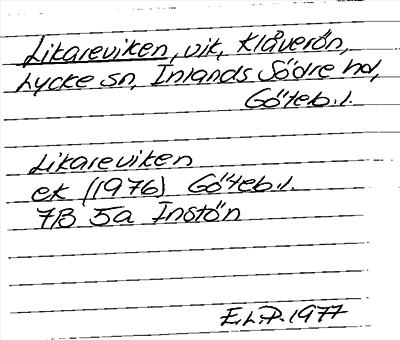 Likareviken, vik, Klåverön,
Lycke sn, Inlands Södre hd,
Göteb. l.
Likareviken
ek (1976) Göteb. l.
7B 5a Instön
E.L.P. 1977